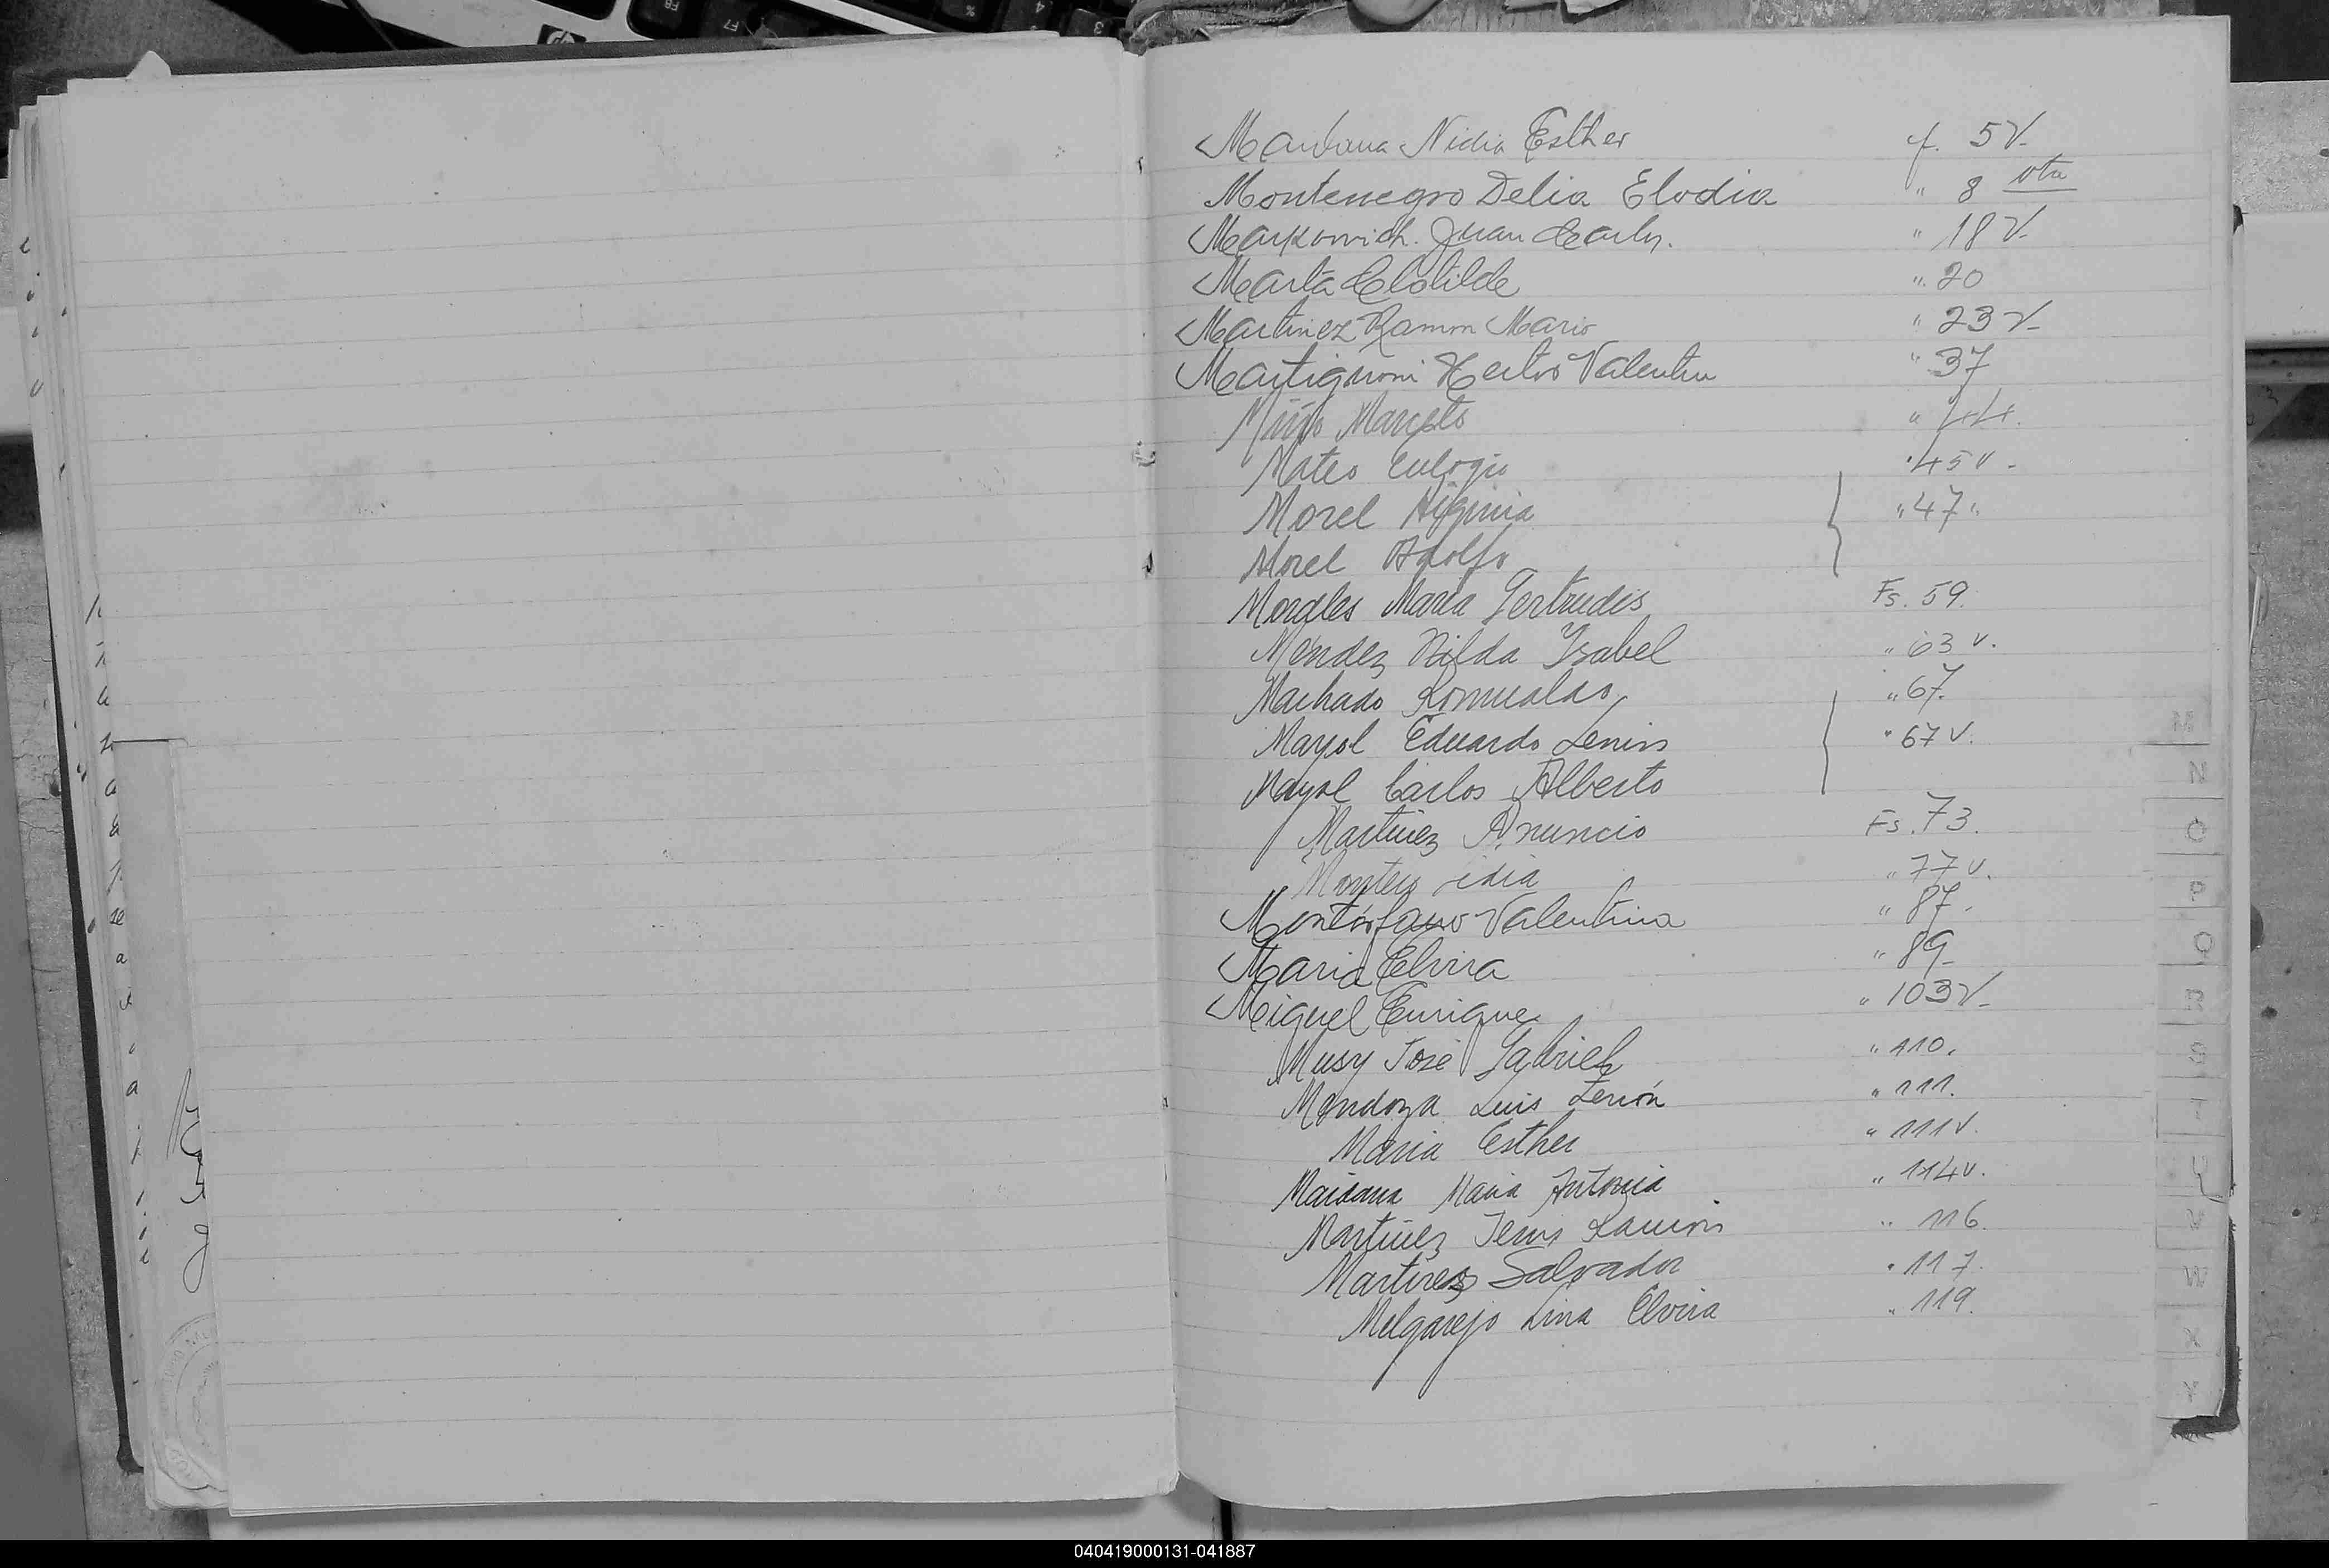 Nidia Esther f. 5 V.
Montenegro Delia Elodia " 8 vta
Markovich. Juan Carlos. " 18 V.
Marta Clotilde " 20
Martinez Ramon Mario " 23 V.
Martignoni Hector Valentin " 37
Miño Marcelo " 44.
Mateo Eulogio " 45 v.
Morel Higinia " 47 "
Morel Adolfo
Morales Maria Gertrudis Fs. 59.
Mendez Nilda Ysabel " 63 v.
Machado Romualdo " 67.
Mayol Eduardo Lenin " 67 v.
Mayol Carlos Alberto
Martinez Anuncio Fs. 73.
Lidia " 77 v.
Montórfano Valentina " 87.
Maria Elvira " 89
Miguel Enrique " 103 V.
Musy José Gabriel " 110.
Mendoza Luis Zenón " 111.
Maria Esther " 111 v.
Maidana Maria Antonia " 114 v.
Martinez Jesus Ramón " 116.
Martinez Salvador " 117.
Melgarejo Lina Elvira " 119.
M
N
O
P
Q
R
S
T
U
V
W
X
Y
040419000131-041887